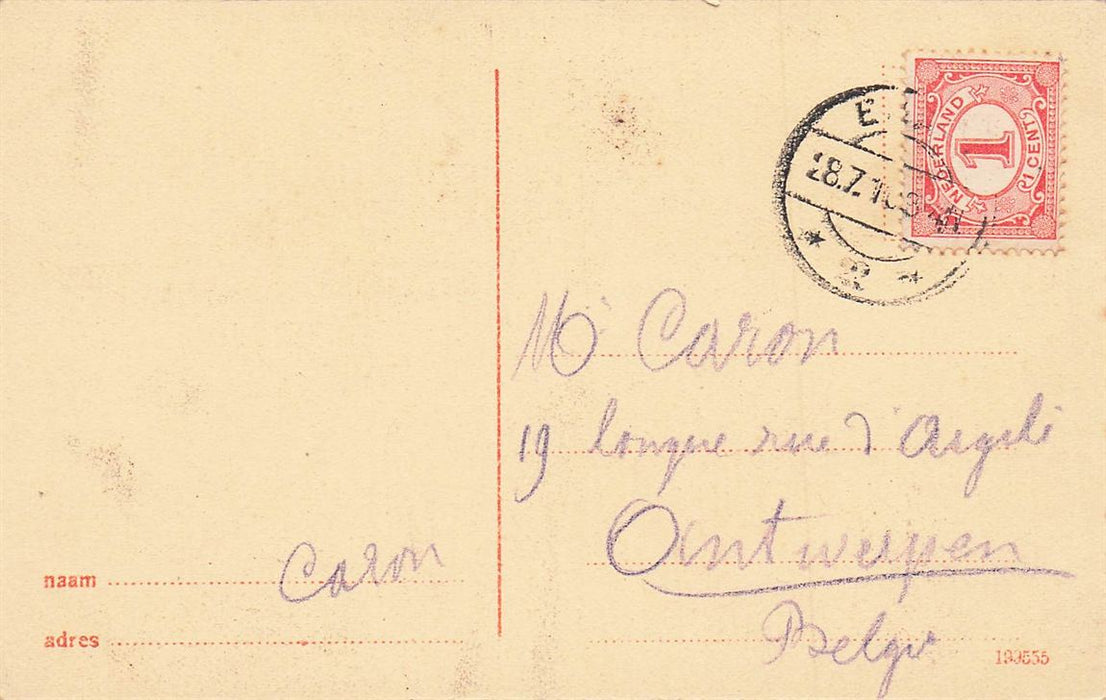 NEDERLAND
1
1 CENT
28.7.1
Mr Caron
19 longue rue d'Argile
Antwerpen
Belgie
naam Caron
adres
199555